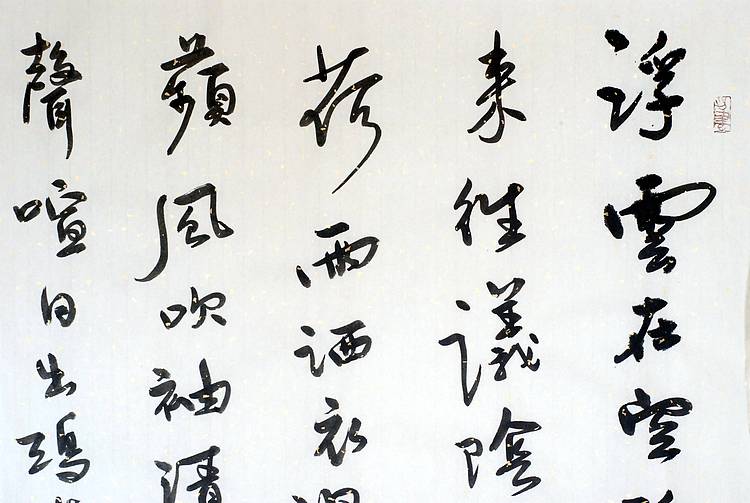 浮雲在空
来往議陰
荷雨洒衣
蘋風吹袖清
聲喧日出鷗